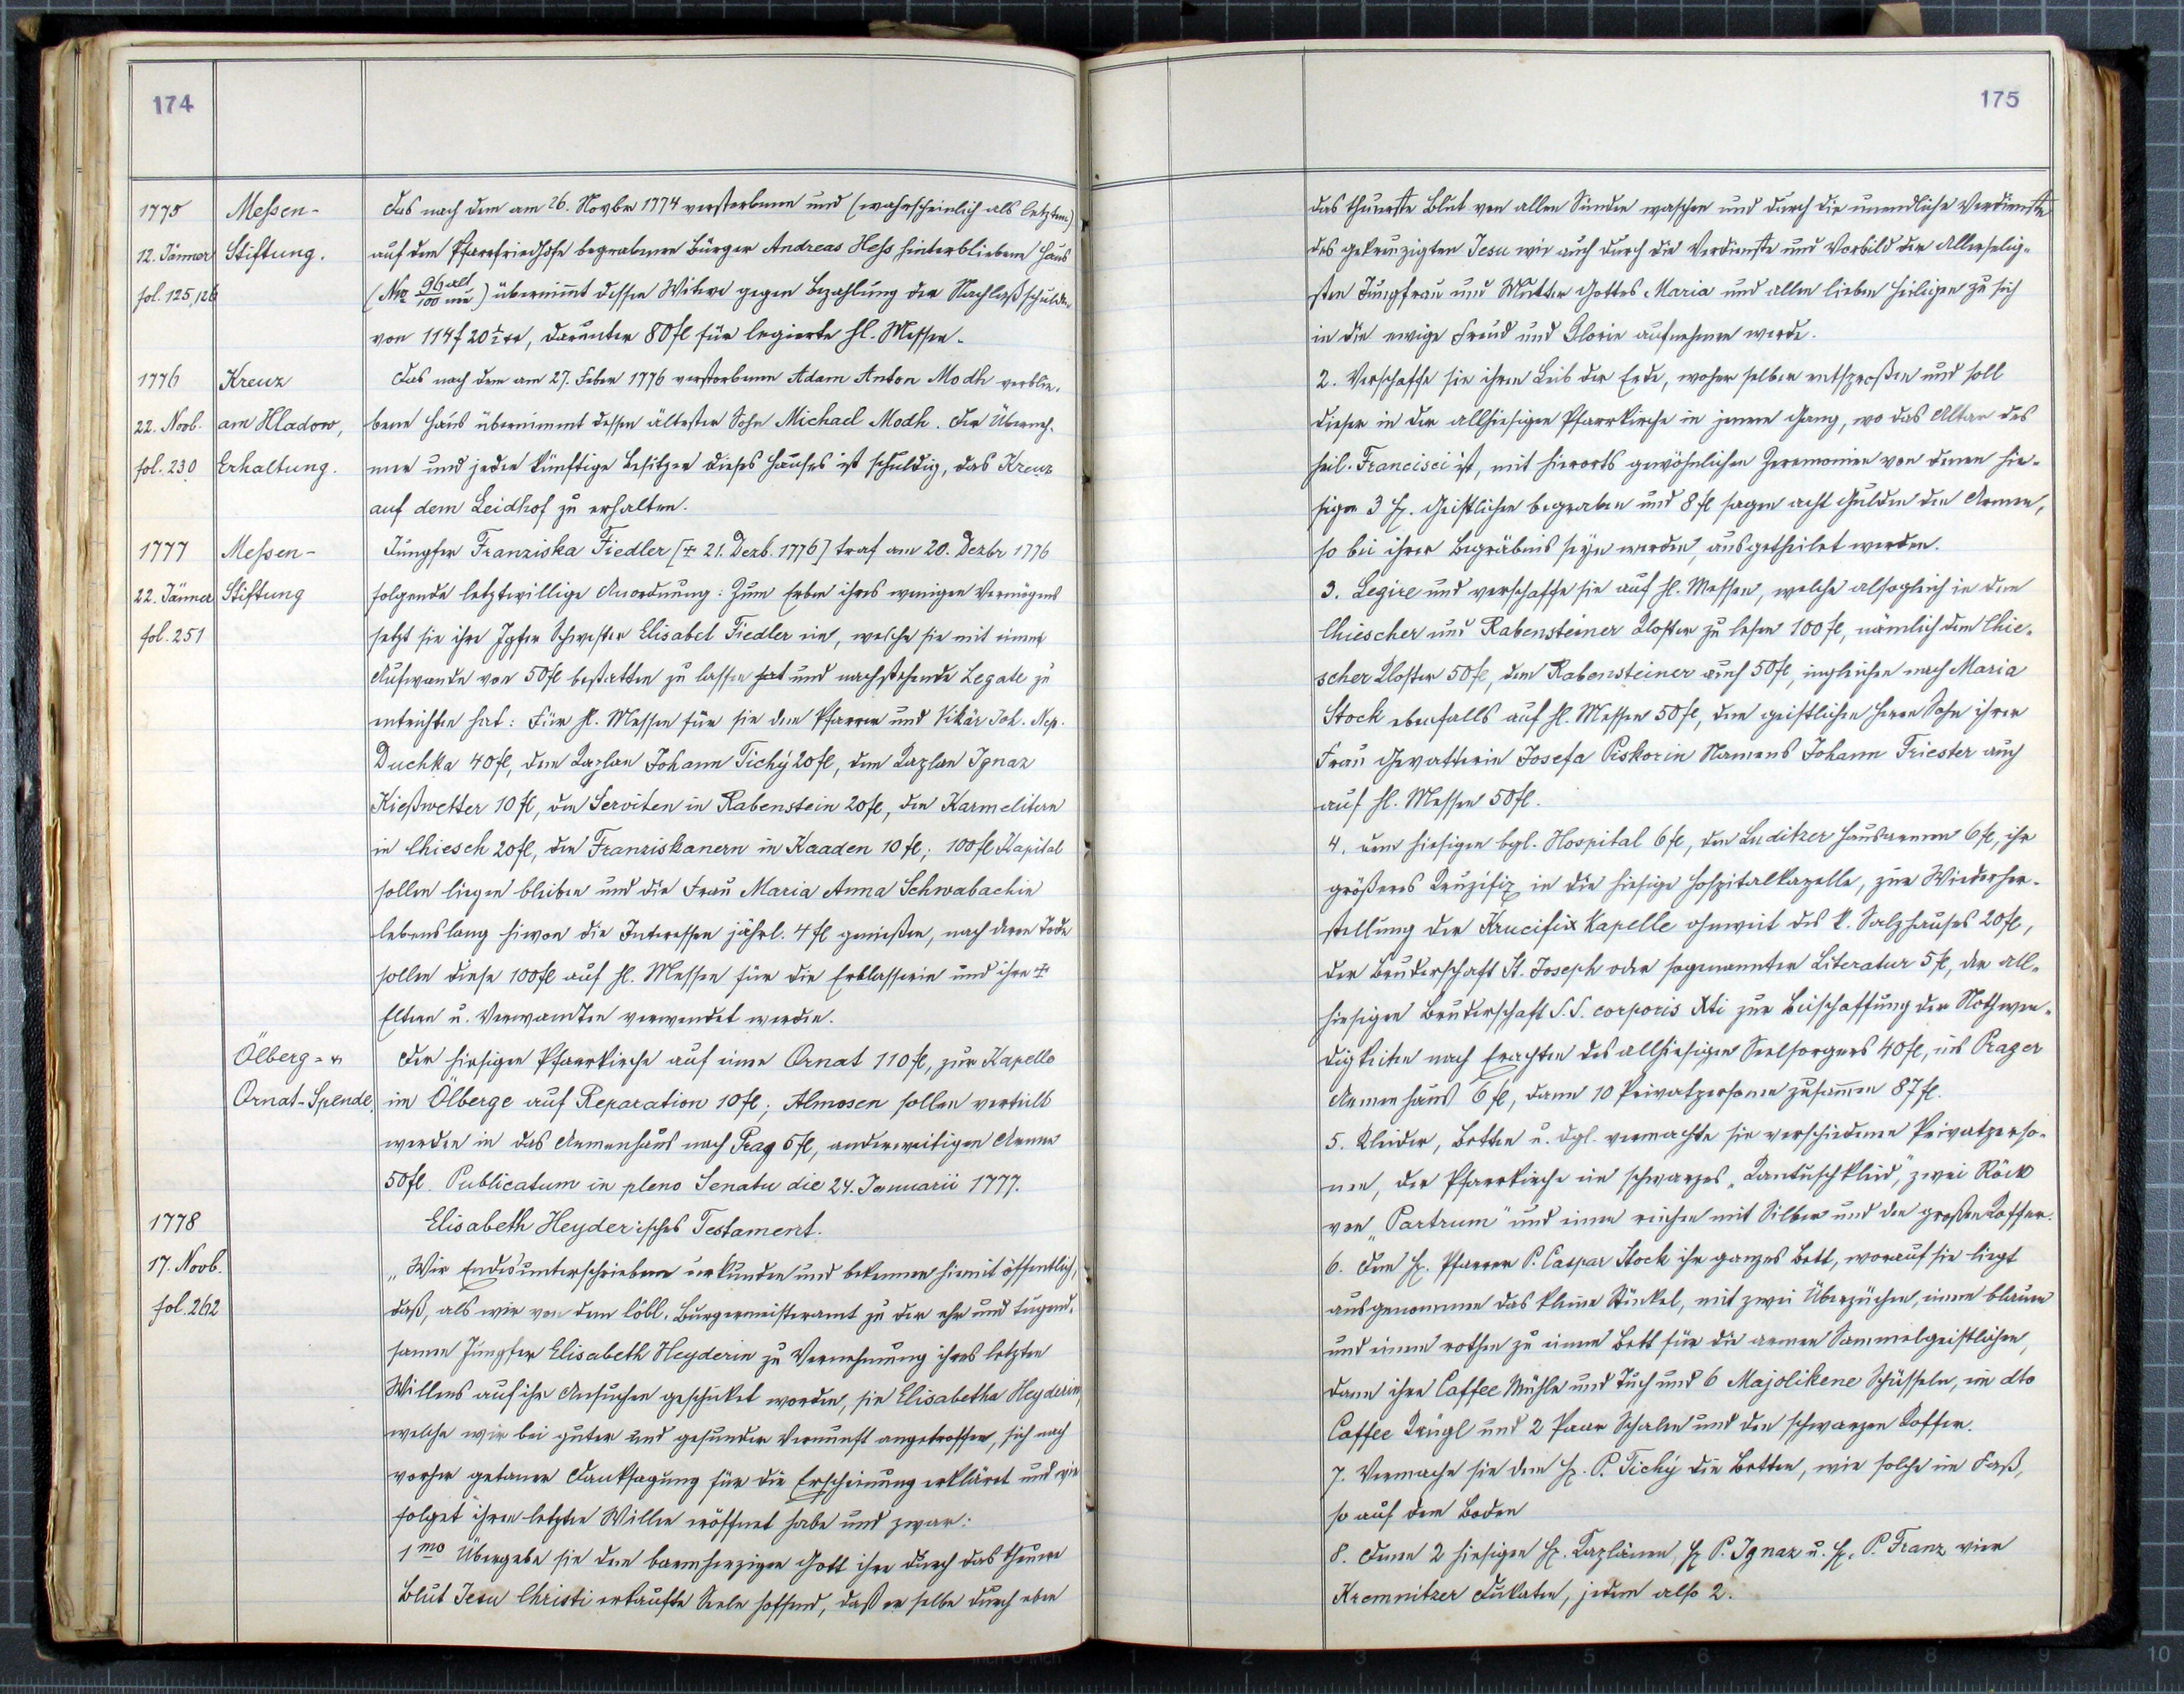 174
1775
12. Jänner
fol. 125, 126
Messen-
Stiftung.
Das nach dem am 26. Novber 1774 verstorbenen und (wahrscheinlich als letzten)
auf dem Pfarrfriedhofe begrabenen Bürger Andreas Heß hinterbliebene Haus
(Nr. 96 alt / 100 neu) übernimmt dessen Witwe gegen Bezahlung der Nachlaßschulden
von 114 f 20 xr, darunter 80 fl für legierte hl. Messen.
1776
22. Novb.
fol. 230
Kreuz
am Hladow,
Erhaltung.
Das nach dem am 27. Feber 1776 verstorbenen Adam Anton Modh verblie-
bene Haus übernimmt dessen ältester Sohn Michael Modh. Der Überneh-
mer und jeder künftige Besitzer dieses Hauses ist schuldig, das Kreuz
auf dem Leidhof zu erhalten.
1777
22. Jänner
fol. 251
Messen-
Stiftung
Jungfer Franziska Fiedler [† 21. Dezb. 1776] traf am 20. Dezbr 1776
folgende letztwillige Anordnung: Zum Erben ihres wenigen Vermögens
setzt sie ihre Jgfer Schwester Elisabet Fiedler ein, welche sie mit einem
Aufwande von 50 fl bestatten zu lassen hat und nachstehende Legate zu
entrichten hat: Für hl. Messen für sie dem Pfarrer und Vikär Joh. Nep.
Duchka 40 fl, dem Kaplan Johann Tichý 20 fl, dem Kaplan Ignaz
Kießwetter 10 fl, den Serviten in Rabenstein 20 fl, den Karmelitern
in Chiesch 20 fl, den Franziskanern in Kaaden 10 fl; 100 fl Kapital
sollen liegen bleiben und die Frau Maria Anna Schwabachin
lebenslang hievon die Interessen jährl. 4 fl genießen, nach deren Tode
sollen diese 100 fl auf hl. Messen für die Erblasserin und ihre †
Eltern u. Verwandten verwendet werden.
Ölberg- u
Ornat-Spende.
Der hiesigen Pfarrkirche auf einen Ornat 110 fl, zur Kapelle
im Ölberge auf Reparation 10 fl; Almosen sollen verteilt
werden in das Armenhaus nach Prag 6 fl, anderweitigen Armen
50 fl. Publicatum in pleno Senatu die 24. Januarii 1777.
1778
17. Novb.
fol. 262
Elisabeth Heyderisches Testament.
„Wir Endesunterschriebene urkunden und bekennen hiemit öffentlich,
daß, als wir von dem löbl. Burgermeisteramt zu der ehr und tugend-
samen Jungfer Elisabeth Heyderin zu Vernehmung ihres letzten
Willens auf ihr Ansuchen geschicket worden, sie Elisabetha Heyderin,
welche wir bei guter und gesunder Vernunft angetroffen, sich nach
vorher getaner Danksagung für die Erscheinung erkläret und wie
folget ihren letzten Willen eröffnet habe und zwar:
1mo Übergebe sie dem barmherzigen Gott ihre durch das theuere
Blut Jesu Christi erkaufte Seele hoffend, daß er selbe durch eben
175
das theuerste Blut von allen Sünden waschen und durch die unendliche Verdienste
des gekreuzigten Jesu wie auch durch die Verdienste und Vorbild der Allerselig-
sten Jungfrau und Mutter Gottes Maria und allen lieben Heiligen zu sich
in die ewige Freud und Glorie aufnehmen werde.
2. Verschaffe sie ihren Leib der Erde, woher selber entsproßen und soll
dieser in der allhiesigen Pfarrkirche in jenem Gang, wo das Altar des
heil. Francisci ist, mit hierorts gewöhnlichen Zeremonien von denen hie-
sigen 3 H. Geistlichen begraben und 8 fl sagen acht Gulden den Armen,
so bei ihrer Begräbnis seyn werden, ausgetheilet werden.
3. Legire und verschaffe sie auf hl. Messen, welche alsogleich in dem
Chiescher und Rabensteiner Kloster zu lesen 100 fl, nämlich dem Chie-
scher Kloster 50 fl, dem Rabensteiner auch 50 fl, ingleichen nach Maria
Stock ebenfalls auf hl. Messen 50 fl, dem geistlichen Herrn Sohn ihrer
Frau Gevatterin Josefa Piskorin Namens Johann Triester auch
auf hl. Messen 50 fl.
4. dem hiesigen bgl. Hospital 6 fl, den Luditzer Hausarmen 6 fl, ihr
größeres Kruzifix in die hiesige Hospitalkapelle, zur Wiederher-
stellung der Krucifix Kapelle ohnweit des k. Salzhauses 20 fl,
der Bruderschaft St. Joseph oder sogenannter Literatur 5 fl, der all-
hiesigen Bruderschaft S.S. corporis Xti zur Beischaffung der Nothwen-
digkeiten nach Erachten des allhiesigen Seelsorgers 40 fl, ins Prager
Armenhaus 6 fl, dann 10 Privatpersonen zusammen 87 fl.
5. Kleider, Betten u. dgl. vermachte sie verschiedenen Privatperso-
nen, der Pfarrkirche ein schwarzes „Kantuschkleid," zwei Röck
von „Partrum" und einen reichen mit Silber und den großen Koffer.
6. Dem H. Pfarrer P. Caspar Stock ihr ganzes Bett, worauf sie liegt
ausgenommen das kleine Stückel, mit zwei Überzüchen, einen blauen
und einen rothen zu einem Bett für die armen Sammelgeistlichen,
dann ihre Caffee Mühle und Tuch und 6 Majolikene Schüsseln, ein dto
Caffee Krügl und 2 Paar Schalen und den schwarzen Koffer.
7. Vermache sie dem H. P. Tichý die Betten, wie solche im Faß,
so auf dem Boden
8. Denen 2 hiesigen H. Kaplänen, H P. Ignaz u. H. P. Franz vier
Kremnitzer Dukaten, jedem also 2.